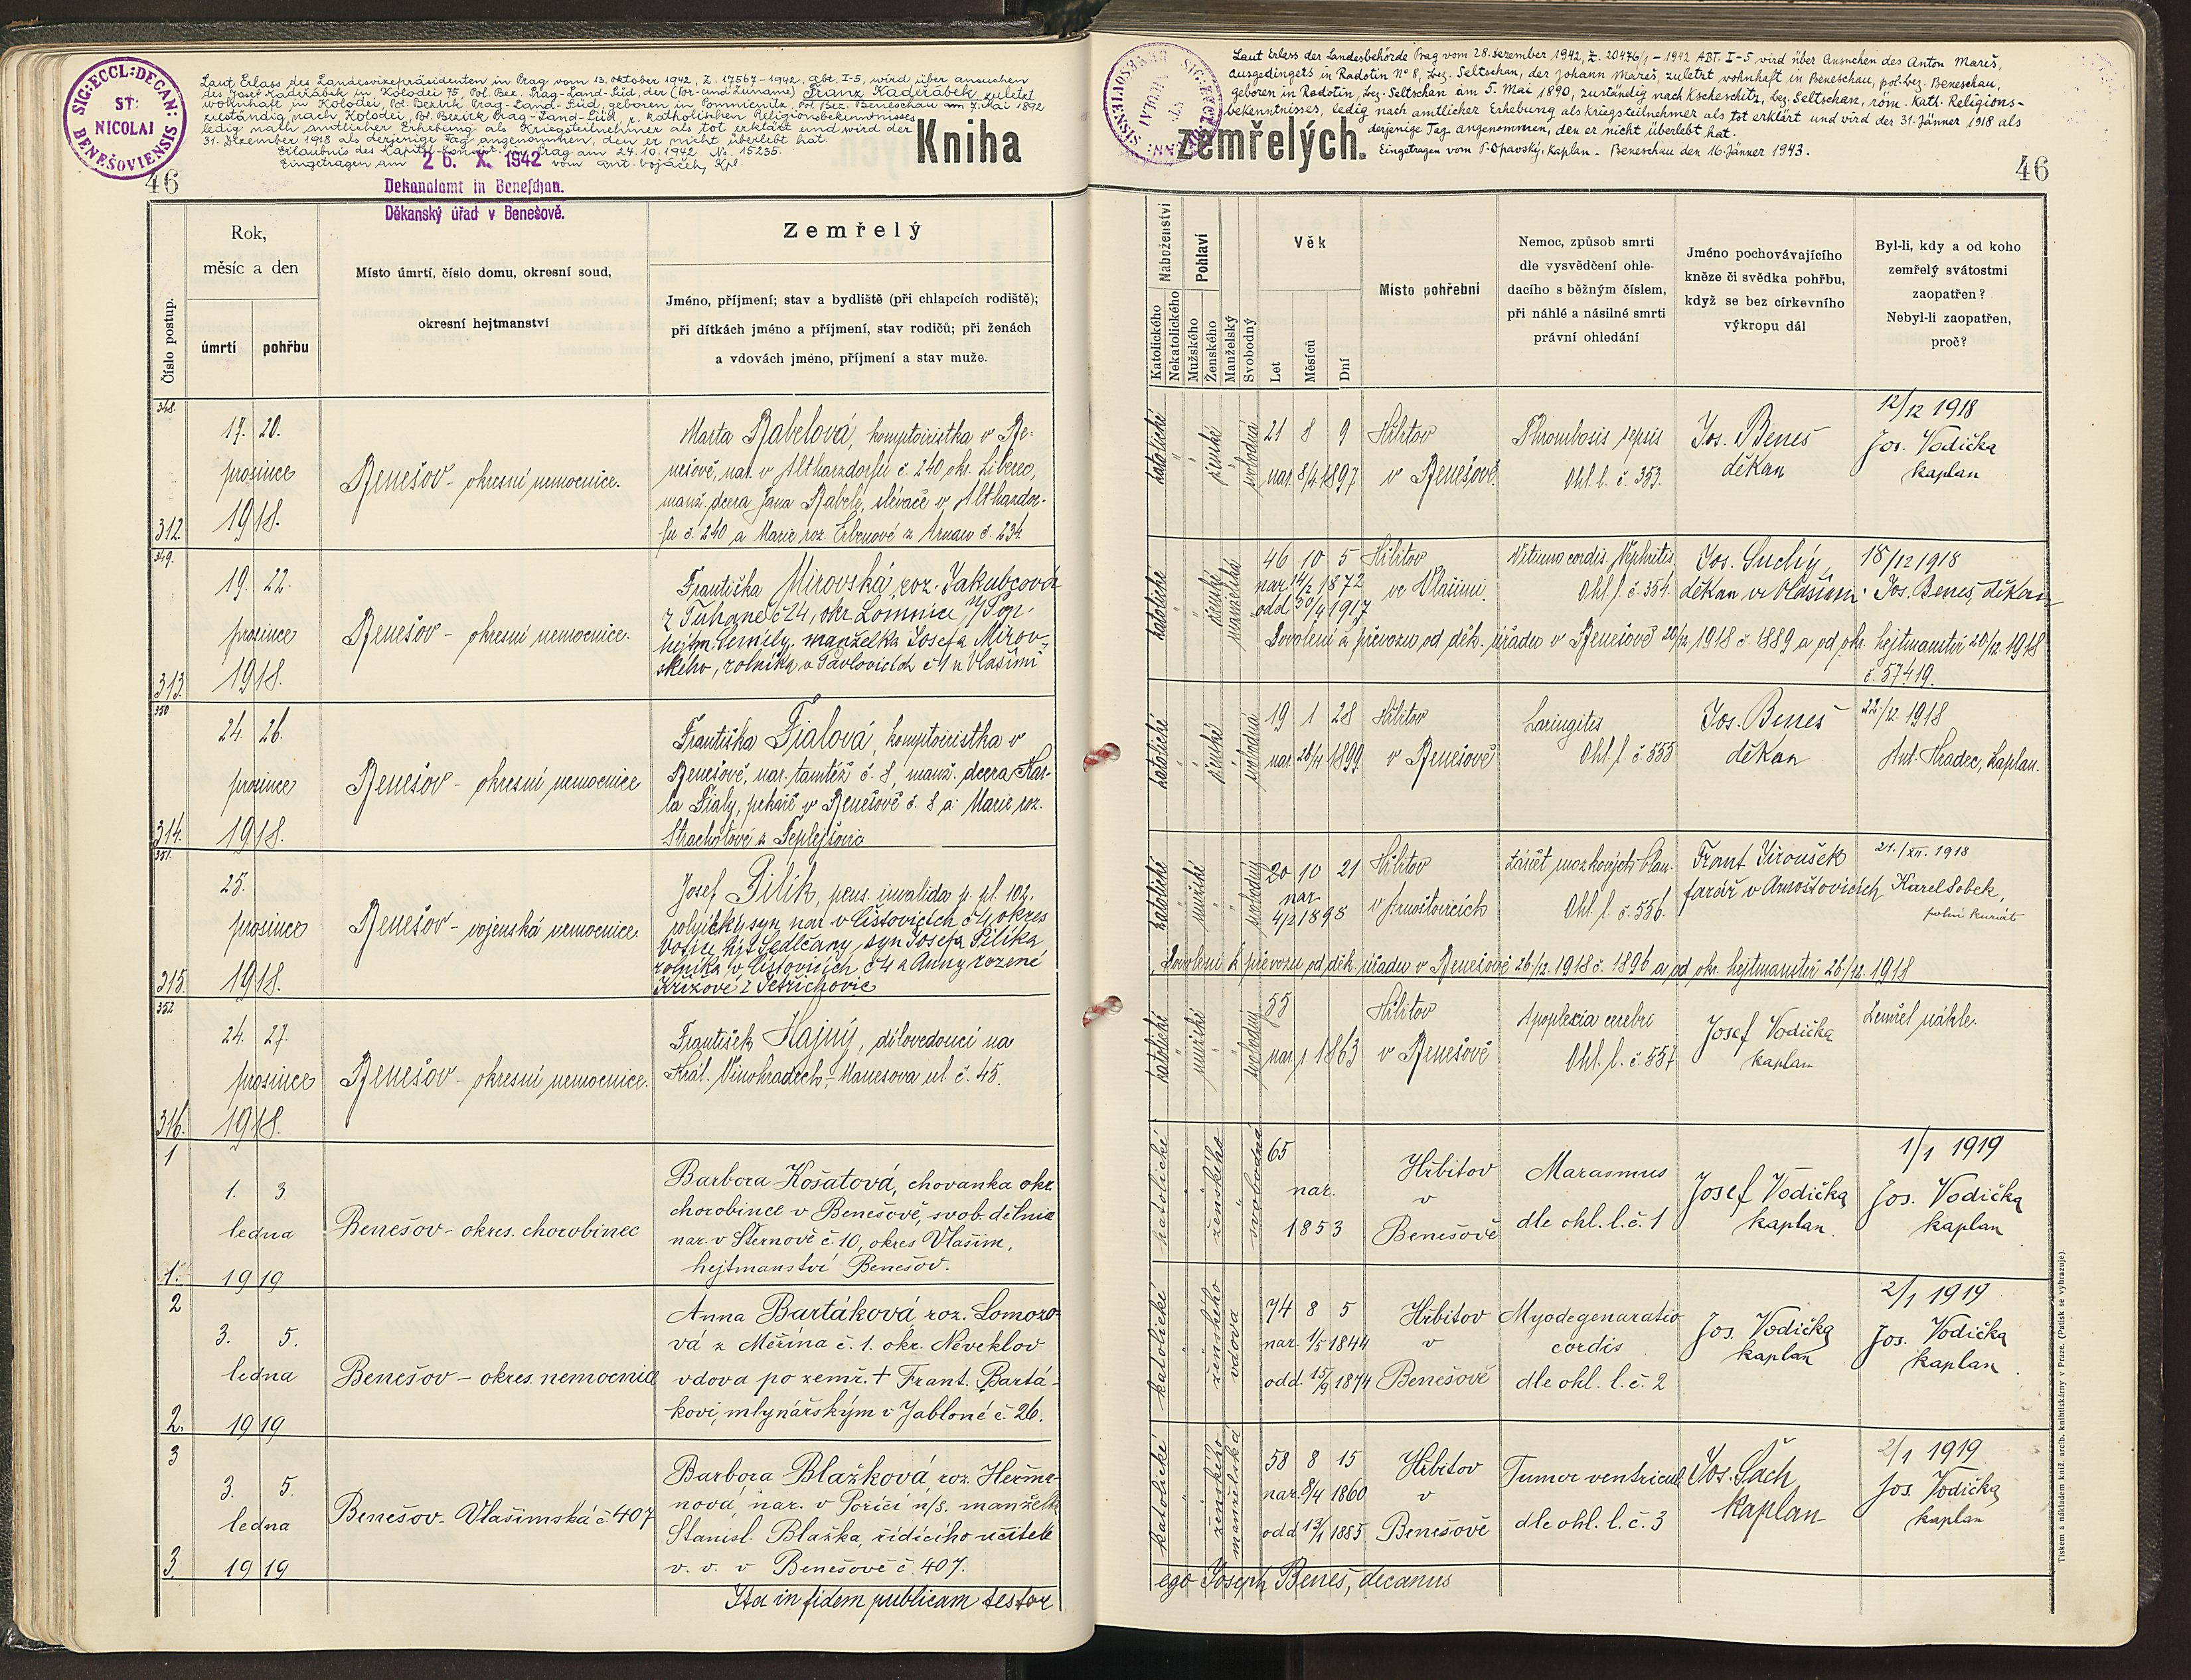 SIG:ECCL:DECAN: BENEŠOVIENSIS
ST:
NICOLAI
Laut Erlass des Landesvizepräsidenten in Prag vom 13. Oktober 1942, Z. 17567-1942 Abt. I-5, wird über ansuchen
des Josef Kadeřábek in Kolodei 75, Pol. Bez. Prag-Land-Süd, der (Vor- und Zuname) Franz Kadeřábek, zuletzt
wohnhaft in Kolodei, Pol. Bezirk Prag-Land-Süd, geboren in Pommienitz, Pol. Bez. Beneschau am 7. Mai 1892
zuständig nach Kolodei, Pol. Bezirk Prag-Land-Süd, r. katholischen Religionsbekenntnisses
ledig nach amtlicher Erhebung als Kriegsteilnehmer als tot erklärt und wird der
31. Dezember 1918 als derjenige Tag angenommen, den er nicht überlebt hat.
Erlaubnis des Kapitl. Konsist. in Prag am 24.10.1942 No. 15235.
Eingetragen am 26. X. 1942 vom Ant. Vojáček, Kpl.
Dekanalamt in Beneschau.
Děkanský úřad v Benešově.
Kniha
46
Číslo postup.
Rok,
měsíc a den
úmrtí
pohřbu
Místo úmrtí, číslo domu, okresní soud,
okresní hejtmanství
Zemřelý
Jméno, příjmení; stav a bydliště (při chlapcích rodiště);
při dítkách jméno a příjmení, stav rodičů; při ženách
a vdovách jméno, příjmení a stav muže.
348.
17. 20.
prosince
1918.
312.
Benešov - okresní nemocnice.
Marta Babelová, komptoiristka v Be-
nešově, nar. v Altharzdorfu č. 240, okr. Liberec,
manž. dcera Jana Babela, slévače v Altharzdor-
fu č. 240 a Marie roz. Erbenové z Arnau č. 234
349.
19. 22.
prosince
1918.
313.
Benešov - okresní nemocnice.
Františka Mirovská, roz. Jakubcová
z Tuhaně č 24, okr. Lomnice n/Pop.
hejtm. Semily, manželka Josefa Mirov-
ského, rolníka, v Pavlovicích č 1 u Vlašimi
350
24. 26.
prosince
1918.
314.
Benešov - okresní nemocnice
Františka Fialová, komptoiristka v
Benešově, nar. tamtéž č. 8, manž. dcera Kar-
la Fialy, pekaře v Benešově č. 8 a Marie roz.
Strachotové z Teplejšovic
351.
25.
prosince
1918.
315.
Benešov - vojenská nemocnice.
Josef Pilík, pens. invalida p. pl. 102.
rolnický syn nar. v Čistovicích č 4 okres
Votice hejt. Sedlčany, syn Josefa Pilíka
rolníka v Čistovicích č 4 a Anny rozené
Křížové z Petřichovic
352
24. 27.
prosince
1918.
316.
Benešov - okresní nemocnice.
František Hajný, dílovedoucí na
Král. Vinohradech - Manesova ul. č. 45.
1
1. 3.
ledna
1919
1.
Benešov - okres. chorobinec
Barbora Košatová, chovanka okr.
chorobince v Benešově, svob. dělnice
nar. v Šternově č. 10, okres Vlašim,
hejtmanství Benešov.
2
3. 5.
ledna
1919
2.
Benešov - okres. nemocnice
Anna Bartáková, roz. Lomozo-
vá z Měřína č. 1. okr. Neveklov
vdova po zemř. + Frant. Bartá-
kovi, mlynářským v Jabloné č. 26.
3
3. 5.
ledna
1919
3.
Benešov - Vlašimská č. 407
Barbora Blažková, roz. Heřma-
nová, nar. v Poříčí n/S. manželka
Stanisl. Blažka, řídícího učitele
v. v. v Benešově č 407.
Ita in fidem publicam testor
Laut Erlass der Landesbehörde Prag vom 28. Dezember 1942, Z. 20476/1-1942 ABT. I-5 wird über Ansuchen des Anton Mareš,
Ausgedingers in Radotin No 8, bez. Seltschan, der Johann Mareš, zuletzt wohnhaft in Beneschau, pol. bez. Beneschau,
geboren in Radotin, bez. Seltschan am 5. Mai 1890, zuständig nach Kscheschitz, bez. Seltschan, röm. kath. Religions-
bekenntnisses, ledig nach amtlicher Erhebung als Kriegsteilnehmer als tot erklärt und wird der 31. Jänner 1918 als
derjenige Tag angenommen, den er nicht überlebt hat.
Eingetragen vom P. Opavský, Kaplan. Beneschau den 16. Jänner 1943.
SIG:ECCL:DECAN: BENEŠOVIENSIS
ST:
NICOLAI
zemřelých.
46
Náboženství
Katolického
Nekatolického
Pohlaví
Mužského
Ženského
Manželský
Svobodný
Věk
Let
Měsíců
Dní
Místo pohřební
Nemoc, způsob smrti
dle vysvědčení ohle-
dacího s běžným číslem,
při náhlé a násilné smrti
právní ohledání
Jméno pochovávajícího
kněze či svědka pohřbu,
když se bez církevního
výkropu dál
Byl-li, kdy a od koho
zemřelý svátostmi
zaopatřen?
Nebyl-li zaopatřen,
proč?
katolické
ženské
svobodná
21 8 9
nar. 8/4 1897
Hřbitov
v Benešově
Thrombosis sepsis
Ohl. l. č. 353.
Jos. Beneš
děkan
12/12 1918
Jos. Vodička
kaplan
katolické
ženské
manželské
46 10 5
nar. 14/2 1872
odd 30/4 1917
Hřbitov
ve Vlašimi
Vitium cordis, Nephritis
Ohl. l. č. 354.
Jos. Suchý,
děkan ve Vlašimi.
18/12 1918
Jos. Beneš, děkan
Dovolení k převozu od děk. úřadu v Benešově 20/12 1918 č. 1889 a od okr. hejtmanství 20/12 1918
č. 57419.
katolické
ženské
svobodná
19 1 28
nar. 26/11 1899
Hřbitov
v Benešově
Laringites
Ohl. l. č. 555
Jos. Beneš
děkan
22/12 1918
Ant. Hradec, kaplan.
katolické
mužské
svobodný
20 10 21
nar.
4/2 1898
Hřbitov
v Arnoštovicích
Zánět mozkových blan.
Ohl. l. č. 556.
Frant. Jiroušek
farář v Arnoštovicích
21./XII. 1918
Karel Sobek,
polní kurát
Dovolení k převozu od děk. úřadu v Benešově 26/12. 1918 č. 1896 a od okr. hejtmanství 26/12. 1918
katolické
mužské
svobodný
55
nar. 1863
Hřbitov
v Benešově
Apoplexia cerebri
Ohl. l. č. 557
Josef Vodička
kaplan
Zemřel náhle.
katolické
ženského
svobodná
65
nar.
1853
Hřbitov
v
Benešově
Marasmus
dle ohl. l. č. 1
Josef Vodička
kaplan.
1/1 1919
Jos. Vodička
kaplan
katolické
ženského
vdova
74 8 5
nar. 1/5 1844
odd. 15/9 1874
Hřbitov
v
Benešově
Myodegenaratio
cordis
dle ohl. l. č. 2
Jos. Vodička
kaplan
2/1 1919
Jos. Vodička
kaplan.
katolické
ženského
manželská
58 8 15
nar. 8/4 1860
odd 13/1 1885
Hřbitov
v
Benešově
Tumor ventriculi
dle ohl. l. č. 3
Jos. Šach
kaplan
2/1 1919
Jos. Vodička
kaplan
ego Joseph Beneš, decanus
Tiskem a nákladem kníž. arcib. knihtiskárny v Praze. (Patisk se vyhrazuje).